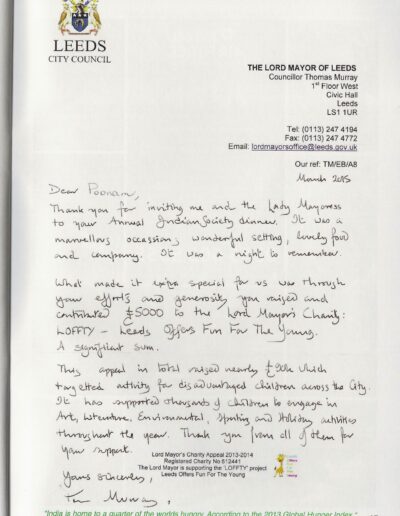 LEEDS
CITY COUNCIL
THE LORD MAYOR OF LEEDS
Councillor Thomas Murray
1st Floor West
Civic Hall
Leeds
LS1 1UR
Tel: (0113) 247 4194
Fax: (0113) 247 4772
Email: lordmayorsoffice@leeds.gov.uk
Our ref: TM/EB/A8
March 2015
Dear Poonam,
Thank you for inviting me and the Lady Mayoress
to your Annual Indian Society dinner. It was a
marvellous occasion, wonderful setting, lovely food
and company. It was a night to remember.
What made it extra special for us was through
your efforts and generosity you raised and
contributed £5000 to the Lord Mayor's Charity:
LOFFTY – Leeds Offers Fun For The Young.
A significant sum.
This appeal in total raised nearly which
targetted activity for disadvantaged children across the City.
It has supported thousands of children to engage in
Art, Literature, Environmental, Sporting and Holiday activities
throughout the year. Thank you from all of them for
your support.
Lord Mayor's Charity Appeal 2013-2014
Registered Charity No 512441
The Lord Mayor is supporting the 'LOFFTY' project
Leeds Offers Fun For The Young
Yours sincerely,
Tom Murray.
"India is home to a quarter of the worlds hungry. According to the 2013 Global Hunger Index."